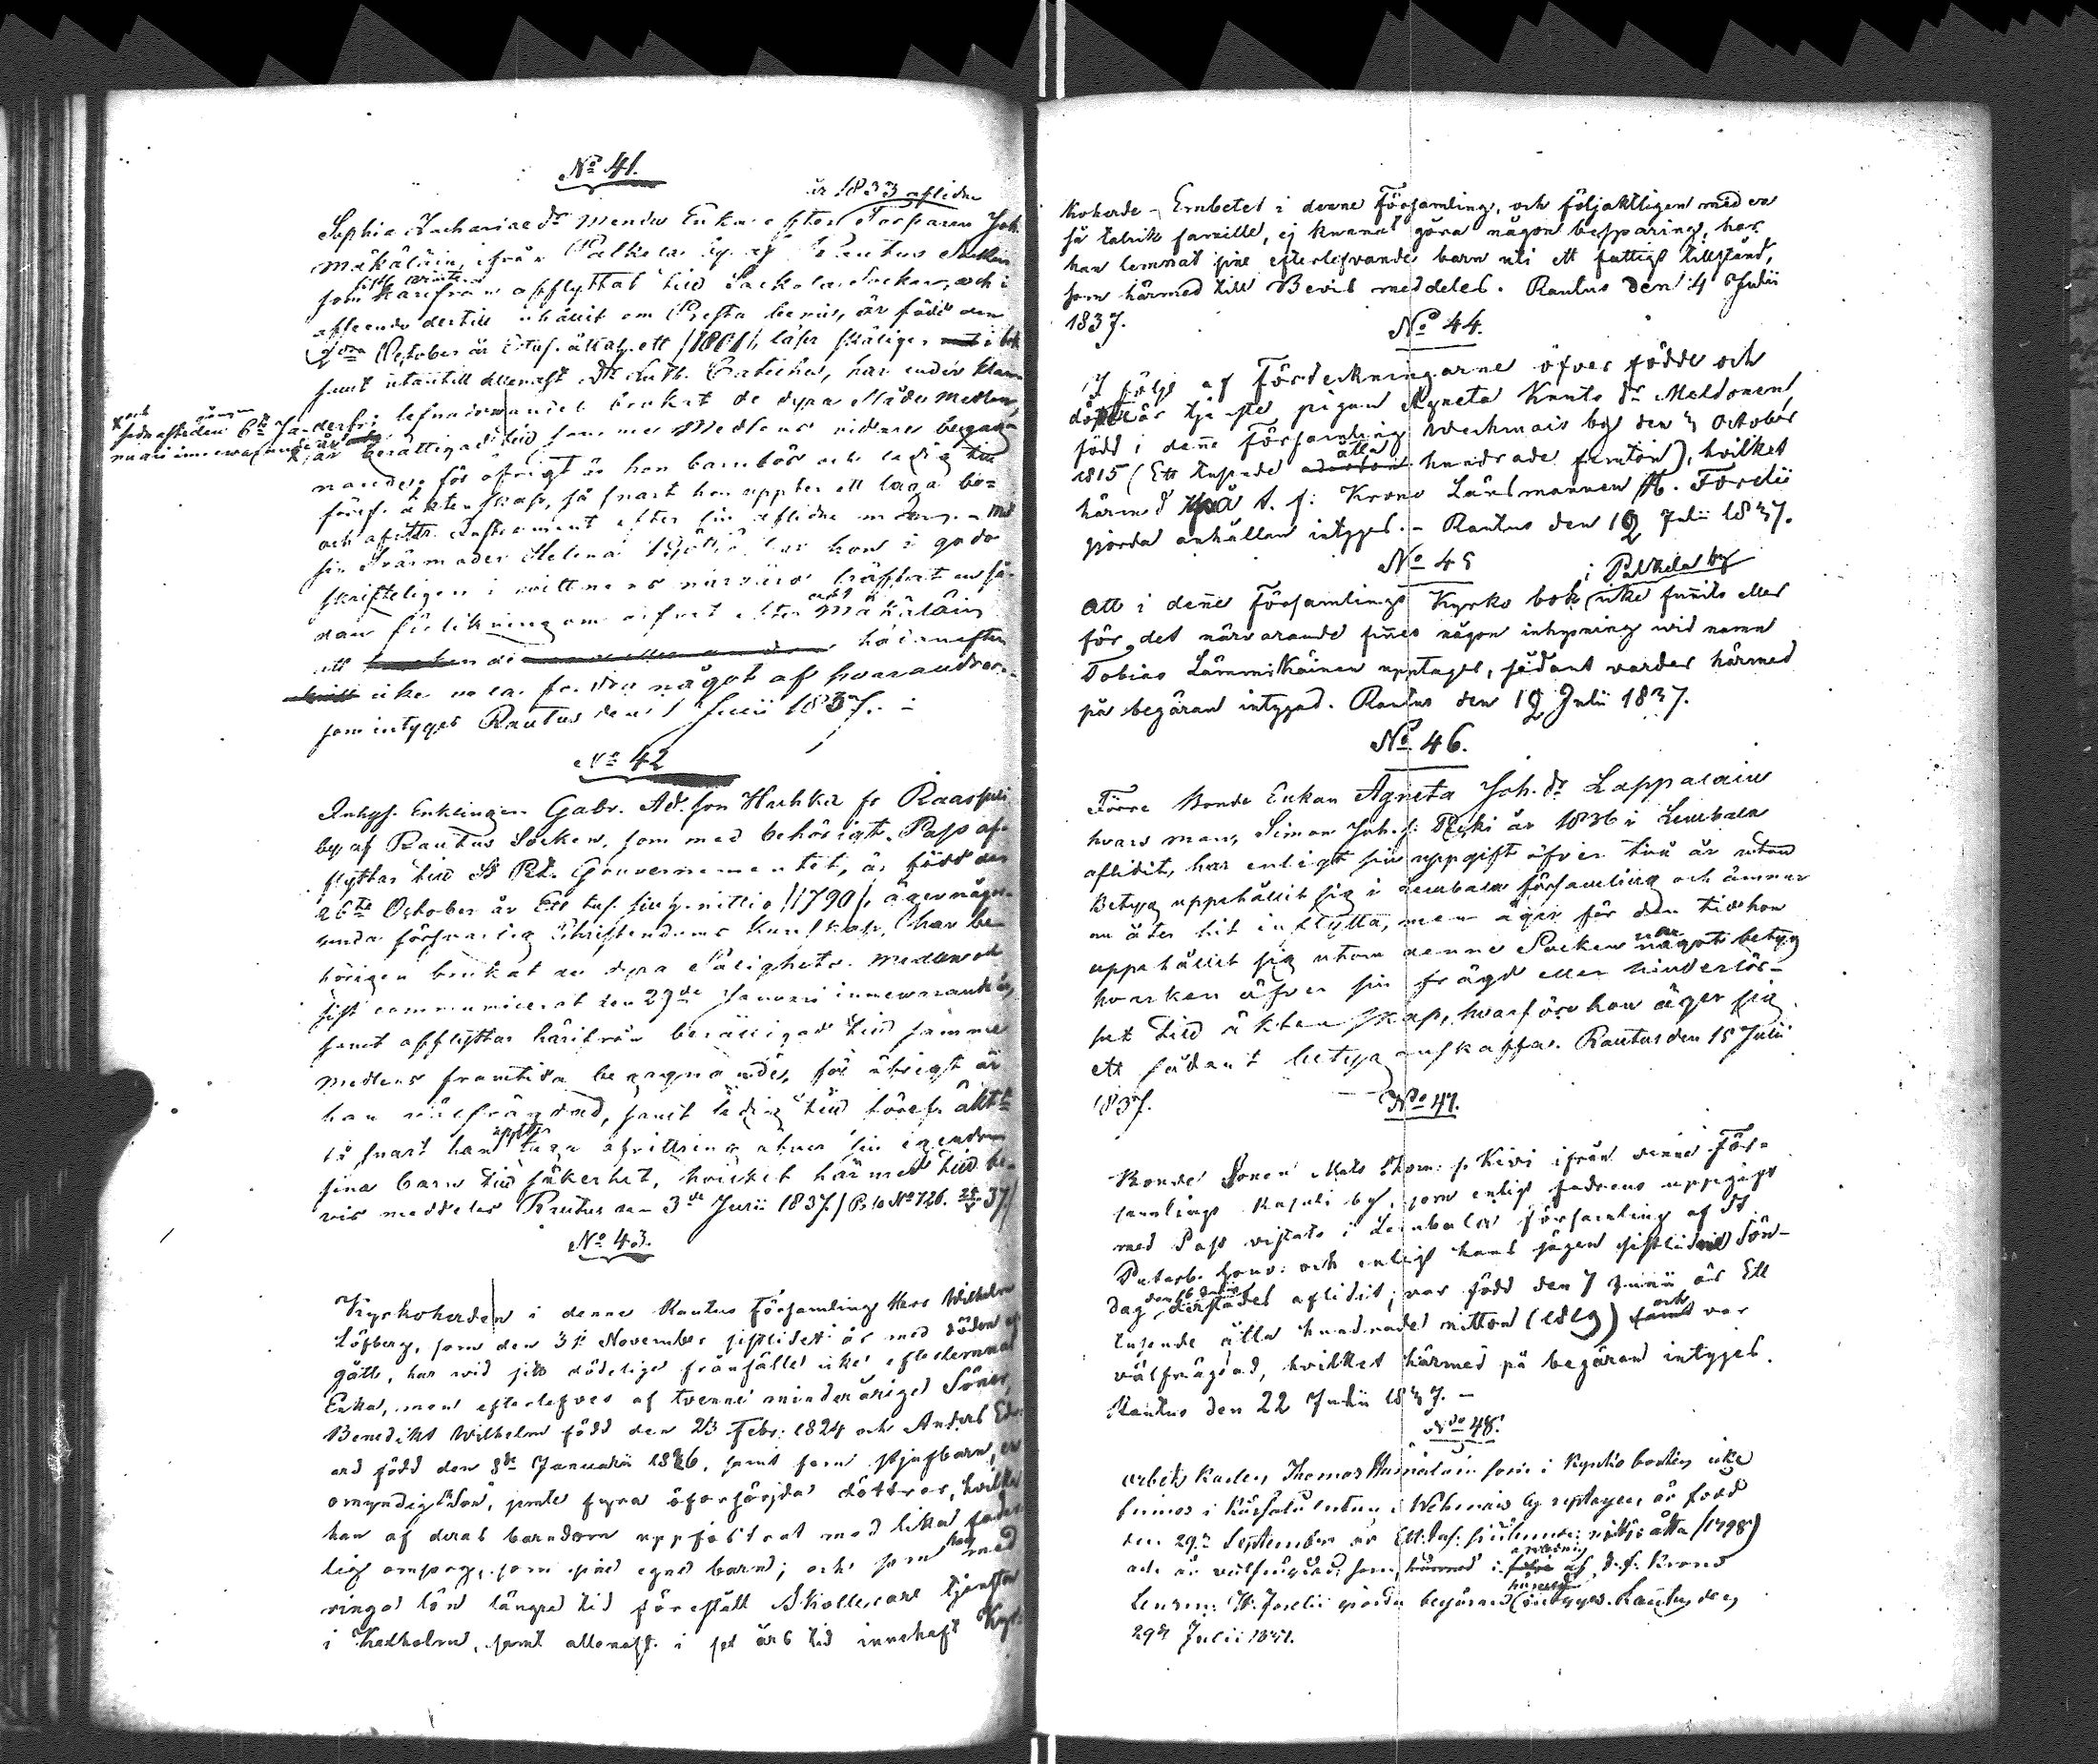 No 41.
år 1833 aflidne
Sophia Zachariae dr Mendu Enka efter Torparen Joh.
Mäkäläin, ifrån Palkela by af Rautus Socken
sistl. winter
som härifrån afflyttat till Sackola Socken, och i
afseende dertill anhållit om Presta bevis, är född den
October år Ett tus. åttah. ett /1801/, läser skäligen i bok
samt utantill allenast Dr Luth. Cateches, har under klan-
derfri lefnadswandel brukat de dyra Nåde Medlen,
och
sednast den 6te Ja-
nuarii innewarande år
är berättigad till samma Medlens vidare begag-
nande, för öfrigt är hon barnlös och ledig till
föresp. äktenskap, så snart hon uppter ett laga bo-
och afvittr. Instrument efter sin aflidne man. Med
sin Svärmoder Helena har hon i godo
skrifteligen i vittnens närvaro träffat en så-
dan förlikning om arfvet efter Mäkäläin
att de härefter
icke vidare fordra något af hvarandra,
som intygas Rautus den 1 Julii 1837.
No 42
Inhys. Enklingen Gabr. Ad. son Huhka fr. Raasuli
by af Rautus Socken, som med behörigt Pass af-
flyttar till St Pet. Gouvernementet, är född den
26te October år Ett tus. sjuh. nittio /1790/, äger någor-
lunda försvarlig Christendoms Kunskap, har be-
hörigen brukat de dyra Salighets Medlen och
sist communicerat den 29de Januari innewarande år,
samt afflyttar härifrån berättigad till samma
Medlens framtida begagnande, för öfrigt är
han välfrägdad, samt ledig till föresp. äkt.
så snart han uppter laga afvittring öfver sin egendom
sina barn till säkerhet, hvilket härmed till be-
vis meddelas Rautus den 3de Julii 1837. / No 726. 37/
No 43.
Kyrkoherden i denne Rautus Församling Herr Wilhelm
Löfberg, som den 3 November sistledet år med döden af-
gått, har wid sitt dödeliga frånfälle icke efterlemnat
Enka, men efterlefves af tvenne minderåriga Söner,
Benedikt Wilhelm född den 23 Febr: 1824 och Anders Edu-
ard född den 8de Januarii 1826, samt fem styfbarn, en
omyndig Son, jemte fyra oförsörjda döttrar, hvilka
han af deras barndom uppfostrat med lika fader-
lig omsorg, som sine egne barn; och som han med
ringa lön längre tid förestått Skollärare tjensten
i Kexholm, samt allenast i sex års tid innehaft Kyr-
koherde-Embetet i denne Församling, och följaktligen med en
så talrik famille, ej kunnat göra någon besparing, har
han lemnat sine efterlefvande barn uti ett fattigt tillstånd,
som härmed till Bevis meddelas. Rautus den 4 Julii
1837.
No 44.
I följe af Förteckningarne öfver födde och
döpte är tjenste pigan Agneta Knuts dr Meldonen,
född i denne Församlings Wechmais by den 4 October
1815 (Ett tusende åtta hundrade femton), hvilket
härmed på t. f. Krono Länsmannen H. Forelii
gjorda anhållan intygas. - Rautus den 12 Julii 1837.
No 45
i Palkela by
Att i denne Församlings Kyrko bok icke funnits eller
för det närvarande finnes någon inhysning wid namn
Tobias Lämmikäinen upptagen, sådant warder härmed
på begäran intygad. Rautus den 12 Julii 1837.
No 46.
Förre Bonde Enkan Agneta Joh. dr Lappalain
hvars man, Simon Joh. s. år 1836 i Lembala
aflidit, har enligt sin uppgift öfver två år utan
Betyg uppehållit sig i Lembala församling och ämnar
nu åter hit inflytta, men äger för den tid hon
uppehållit sig utom denne Socken något betyg
hvarken öfver sin frägd eller hinderlös-
het till äktenskap, hvarföre hon äger sig
ett sådant betyg anskaffa. Rautus den 15 Julii
1837.
No 47.
Bonde Sonen Mats Thom: s. Kivi ifrån denne För-
samlings Rasuli by, som enligt fadrens uppgift
med Pass vistats i Lembala församling af St
Petersb. Gouv: och enligt hans sägen sistlidne Sön-
dag derstädes aflidit, var född den 7 Junii år Ett
tusende åtta hundrade nitton (1819) och var
välfrägdad, hvilket härmed på begäran intygas.
Rautus den 22 Julii 1837. -
No 48.
Arbets Karlen, Thomas som i Kyrko boken icke
finnes i Wehmais by upptagen, är född
den 29de September år Ett tus. sjuhundr: nittio åtta /1798/
och är välfrägdad, som i anledning af t. f. Krono
Länsm: H. Forelii gjorda begäran härmed intygas. Rautus den
29de Julii 1837.